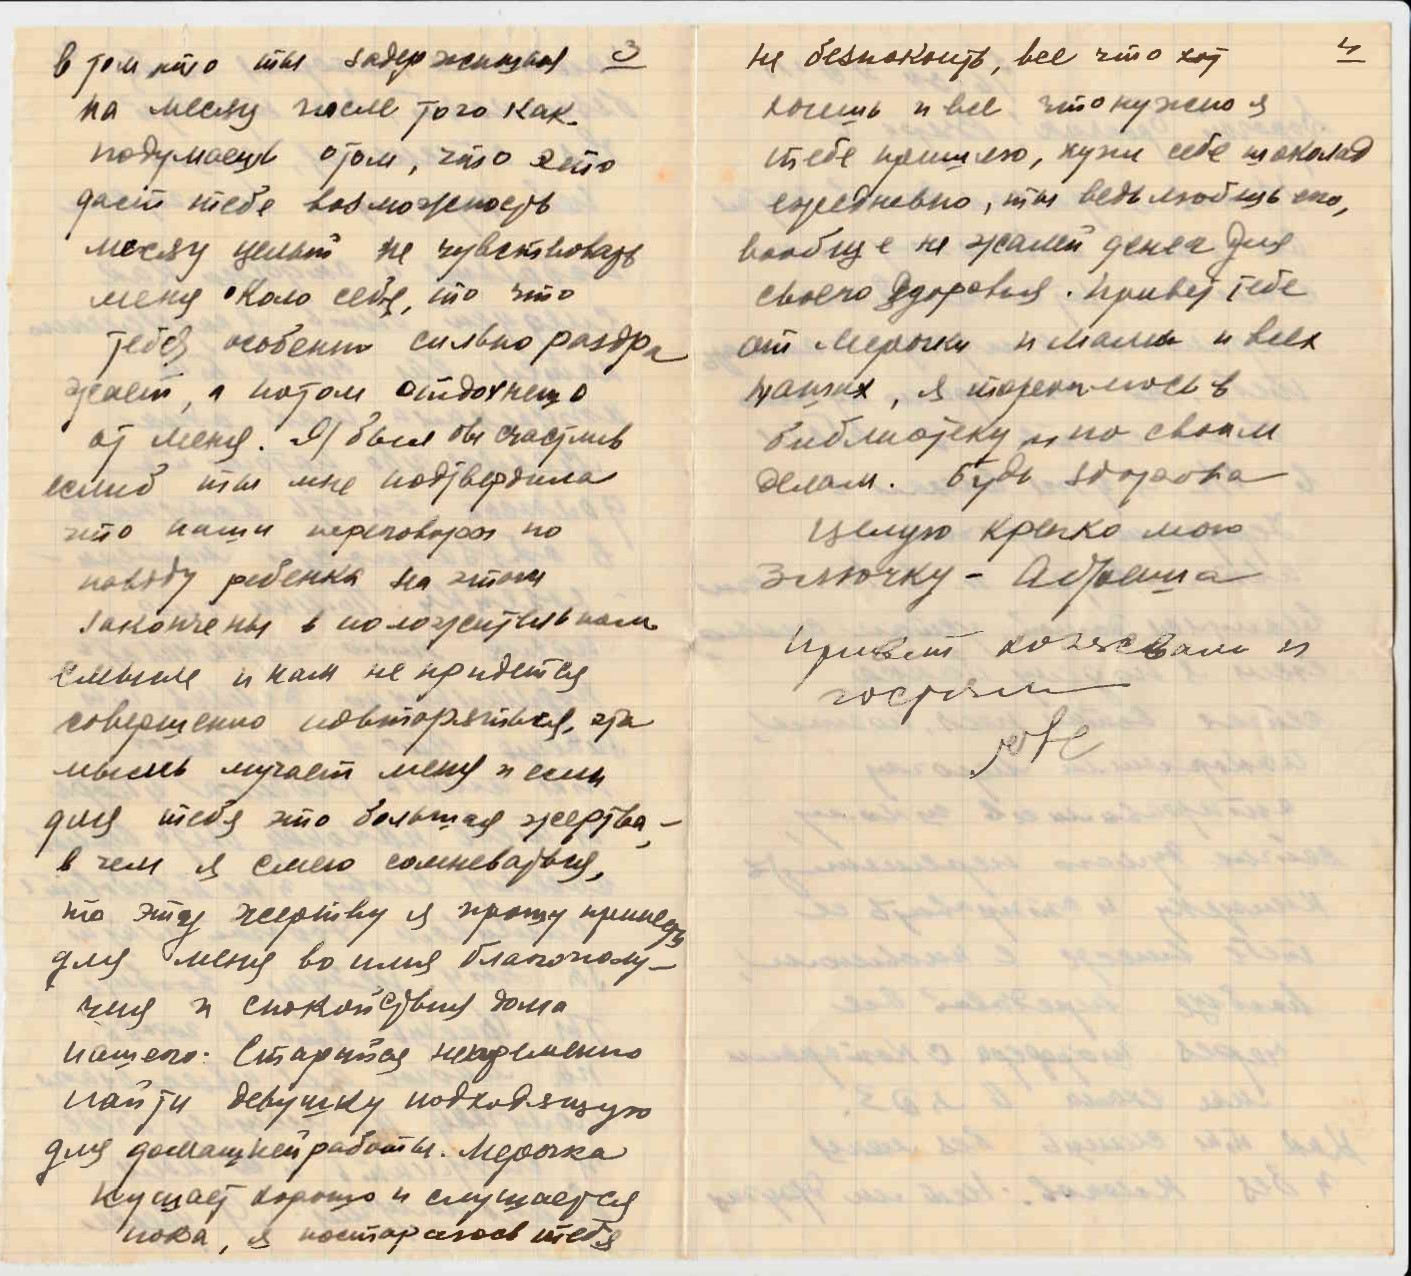 3
в том что ты задержишься
на месяц после того как
подумаешь о том, что это
даст тебе возможность
месяц целый не чувствовать
меня около себя, то что
тебя особенно сильно раздра
жает, а потом отдохнешь
от меня. Я был бы счастлив
еслиб ты мне подтвердила
что наши переговоры по
поводу ребенка на этом
закончены в положительном
смысле и нам не придется
совершенно повторяться, эта
мысль мучает меня и если
для тебя это большая жертва,
в чем я смею сомневаться,
то эту жертву я прошу принесть
для меня во имя благополу-
чия и спокойствия дома
нашего. Старайся непременно
найти девушку подходящую
для домашней работы. Мерочка
кушает хорошо и слушается
пока, я постараюсь тебя
4
не безпокоить, все что хот
хочешь и все что нужно я
тебе пришлю, купи себе шоколад
ежедневно, ты ведь любишь его,
вообще не жалей денег для
своего здоровья. Привет тебе
от Мерочки и мамы и всех
наших, я тороплюсь в
библиотеку и по своим
делам. Будь здорова
Целую крепко мою
Элючку - Абраша
Привет хозяевам и
гостям